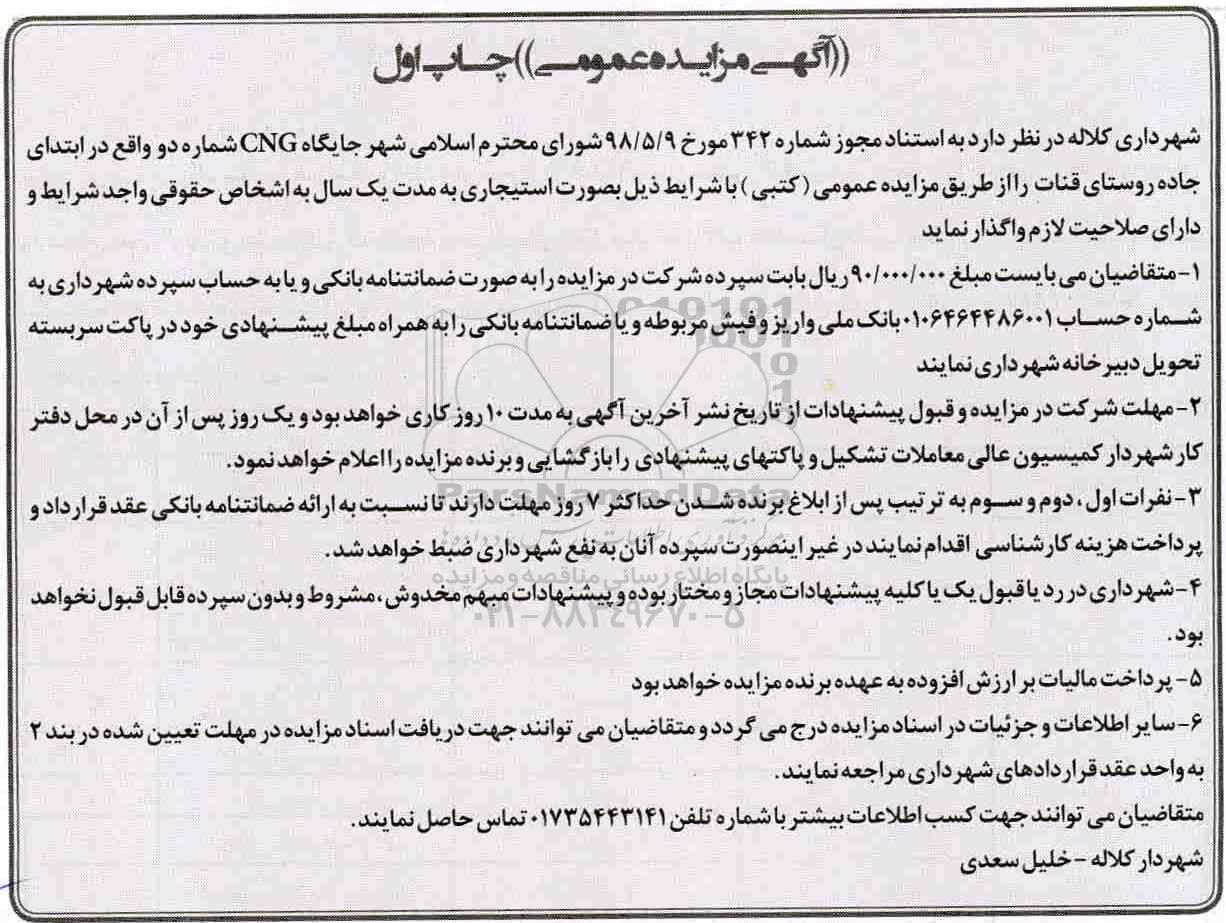 ((آگهی مزایده عمومی)) چاپ اول
شهرداری کلاله در نظر دارد به استناد مجوز شماره ۳۴۲ مورخ ۹۸/۵/۹ شورای محترم اسلامی شهر جایگاه CNG شماره دو واقع در ابتدای
جاده روستای قنات را از طریق مزایده عمومی ( کتبی ) با شرایط ذیل بصورت استیجاری به مدت یک سال به اشخاص حقوقی واجد شرایط و
دارای صلاحیت لازم واگذار نماید
۱-متقاضیان می بایست مبلغ ۹۰/۰۰۰/۰۰۰ ریال بابت سپرده شرکت در مزایده را به صورت ضمانتنامه بانکی و یا به حساب سپرده شهرداری به
شماره حساب ۰۱۰۶۴۶۴۴۸۶۰۰۱ بانک ملی واریز و فیش مربوطه و یا ضمانتنامه بانکی را به همراه مبلغ پیشنهادی خود در پاکت سربسته
تحویل دبیرخانه شهرداری نمایند
۲-مهلت شرکت در مزایده و قبول پیشنهادات از تاریخ نشر آخرین آگهی به مدت ۱۰ روز کاری خواهد بود و یک روز پس از آن در محل دفتر
کار شهردار کمیسیون عالی معاملات تشکیل و پاکتهای پیشنهادی را بازگشایی و برنده مزایده را اعلام خواهد نمود.
ParsNamadData
۳-نفرات اول ، دوم و سوم به ترتیب پس از ابلاغ برنده شدن حداکثر ۷ روز مهلت دارند تا نسبت به ارائه ضمانتنامه بانکی عقد قرارداد و
پرداخت هزینه کارشناسی اقدام نمایند در غیر اینصورت سپرده آنان به نفع شهرداری ضبط خواهد شد.
پایگاه اطلاع رسانی مناقصه و مزایده
۴-شهرداری در رد یا قبول یک یا کلیه پیشنهادات مجاز و مختار بوده و پیشنهادات مبهم مخدوش ، مشروط و بدون سپرده قابل قبول نخواهد
۰۲۱-۸۸۳۴۹۶۷۰-۵
بود.
۵- پرداخت مالیات بر ارزش افزوده به عهده برنده مزایده خواهد بود
۶-سایر اطلاعات و جزئیات در اسناد مزایده درج می گردد و متقاضیان می توانند جهت دریافت اسناد مزایده در مهلت تعیین شده در بند ۲
به واحد عقد قراردادهای شهرداری مراجعه نمایند.
متقاضیان می توانند جهت کسب اطلاعات بیشتر با شماره تلفن ۰۱۷۳۵۴۴۳۱۴۱ تماس حاصل نمایند.
شهردار کلاله - خلیل سعدی